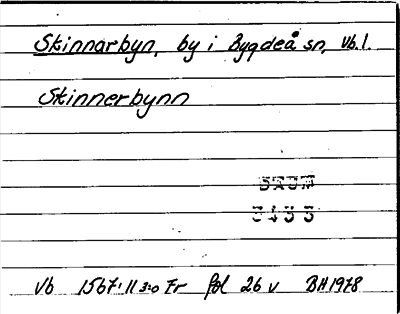 Skinnarbyn, by i Bygdeå sn, Vb.l.
Skinnerbynn
DAUM
3433
Vb 1567:11 3:o Fr fol 26 v BH 1978